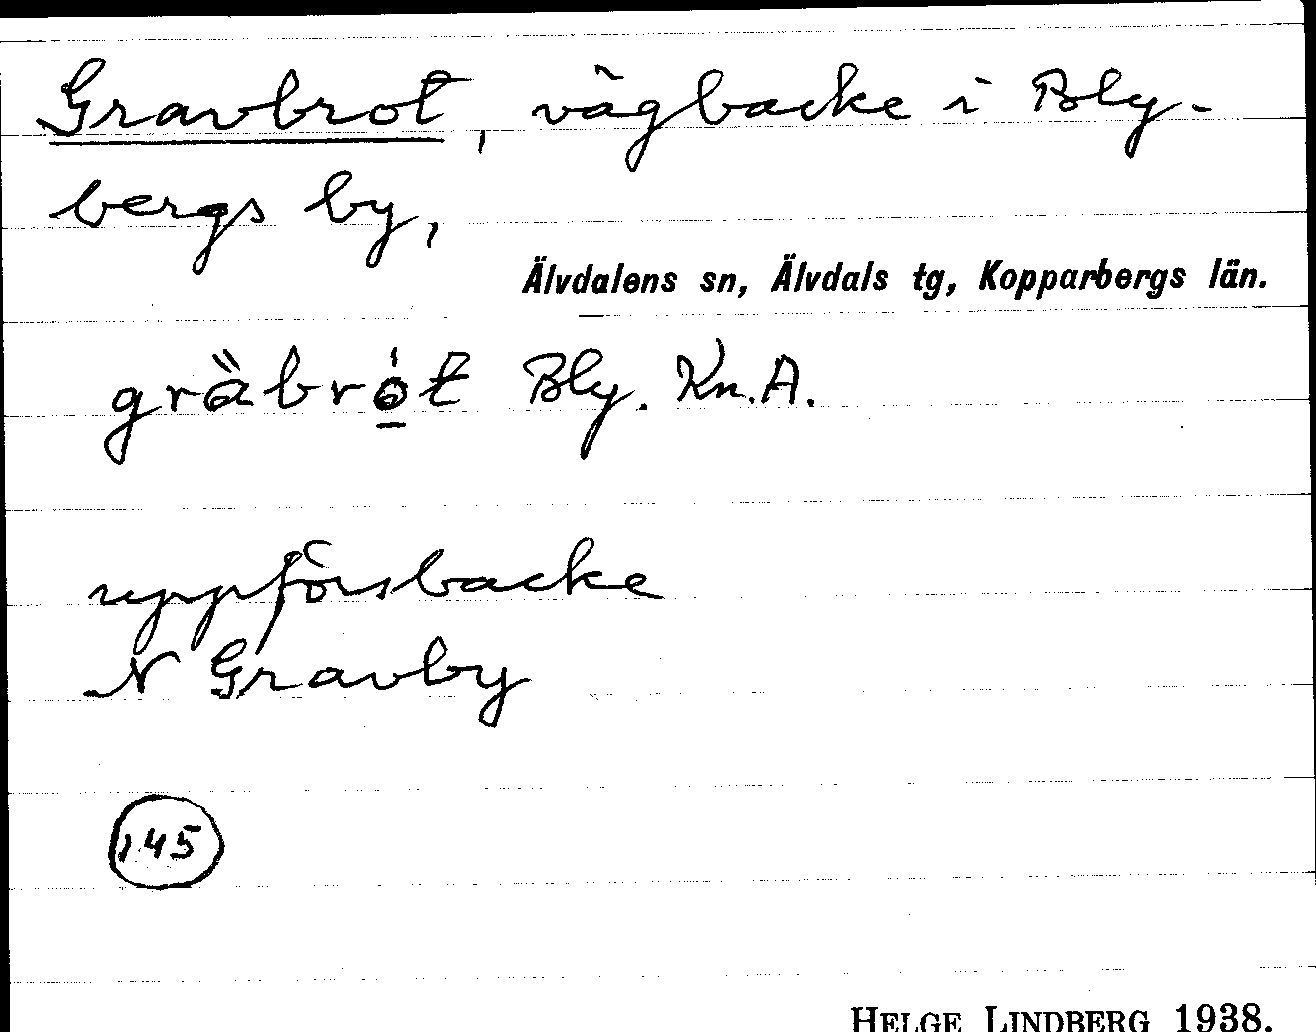 Gravbrot, vägbacke i Bly-
bergs by,
Älvdalens sn, Älvdals tg, Kopparbergs län.
Bly. Kn. A.
uppförsbacke
N Gravby
145
HELGE LINDBERG 1938.